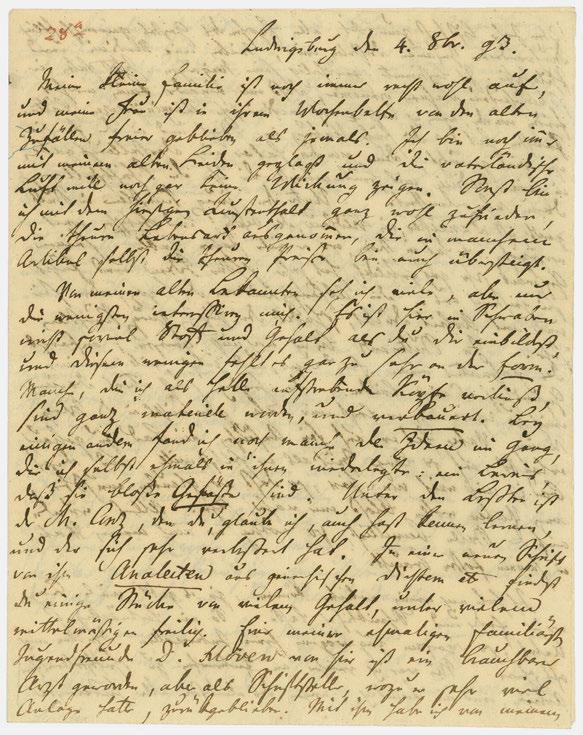 28a
Ludwigsburg den 4. 8br. 93.
Meine kleine Familie ist noch immer recht wohl auf,
und meine Frau ist in ihrem Wochenbette von den alten
Zufällen freier geblieben als jemals. Ich bin noch immer
mit meinem alten Leiden geplagt und die vaterländische
Luft will noch gar keine Wirkung zeigen. Sonst bin
ich mit dem hiesigen Aufenthalt ganz wohl zufrieden,
die theure Lebensart ausgenommen, die in manchem
Artikel selbst die Preise bei euch übersteigt.
Von meinen alten Bekannten sah ich viele, aber nur
die wenigsten interessiren mich. Es ist hier in Schwaben
nicht soviel Stoff und Gehalt als du dir einbildest
und diesen wenigen fehlt es gar zu sehr an der Form.
Manche, die ich als helle aufstrebende Köpfe verließ,
sind ganz materiell worden, und verbauert. Bey
einigen andern fand ich noch manche der Ideen im Gang,
die ich selbst ehmals in ihnen niederlegte: ein Beweis,
daß sie bloße Gefäße sind. Unter den Beßten ist
der M. Conz, den du, glaube ich, auch hast kennen lernen,
und der sich sehr verbessert hat. In einer neuen Schrift
von ihm Analecten aus griechischen Dichtern findest
du einige Stücke von vielem Gehalt, unter vielem
mittelmäßigen freilich. Einer meiner ehmaligen familiärsten
Jugendfreunde D. Hoven von hier ist ein brauchbarer
Arzt geworden, aber als Schriftsteller, wozu er sehr viel
Anlage hatte, zurückgeblieben. Mit ihm habe ich von meinem